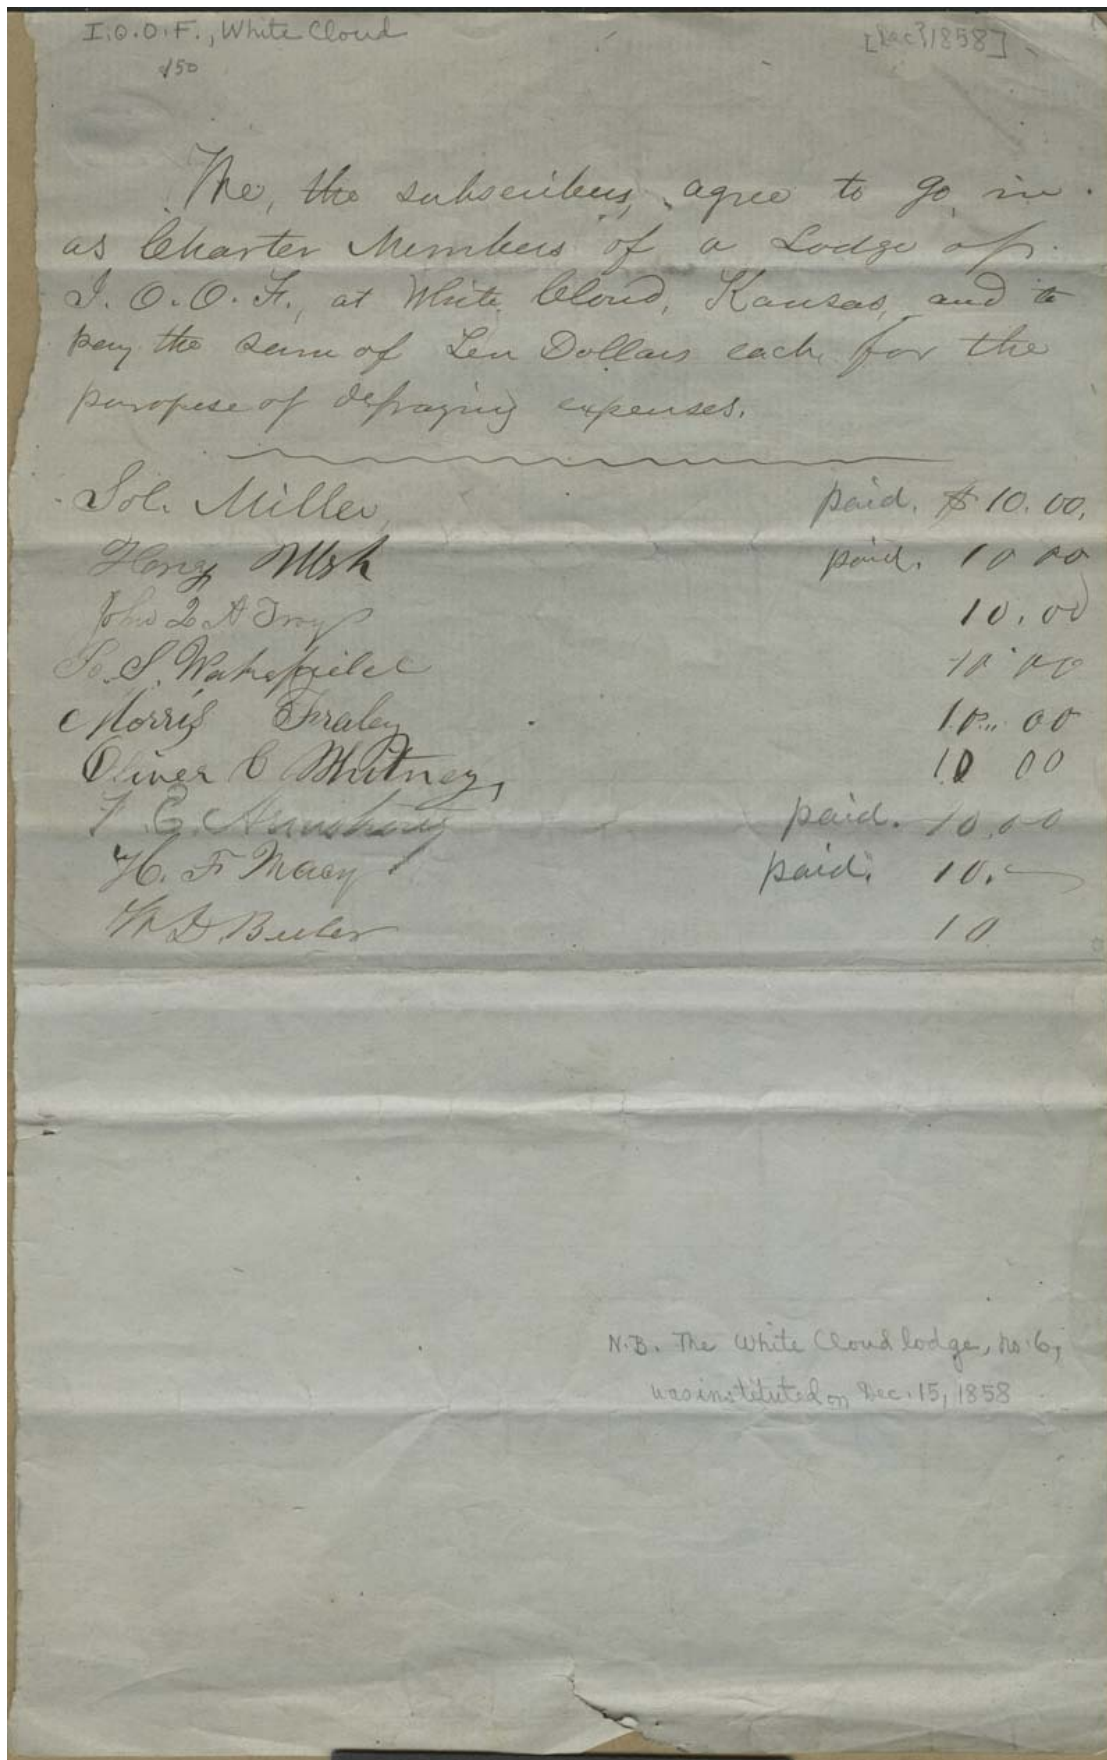 I.O.O.F., White Cloud
[Dec? 1858]
150
We, the subscribers, agree to go in
as Charter Members of a Lodge of
I. O. O. F., at White Cloud, Kansas, and to
pay the sum of Ten Dollars each, for the
purpose of defraying expenses.
Sol. Miller, paid. $10.00.
Henry paid. 10 00
John Q A Troy 10.00
S. Wakefield 10 00
Morris Fraley 10.. 00
Oliver C Whitney, 10 00
F. E. Armstrong paid. 10.00
H. F Macy paid. 10.
10
N.B. The White Cloud lodge, no. 6,
was instituted on Dec. 15, 1858